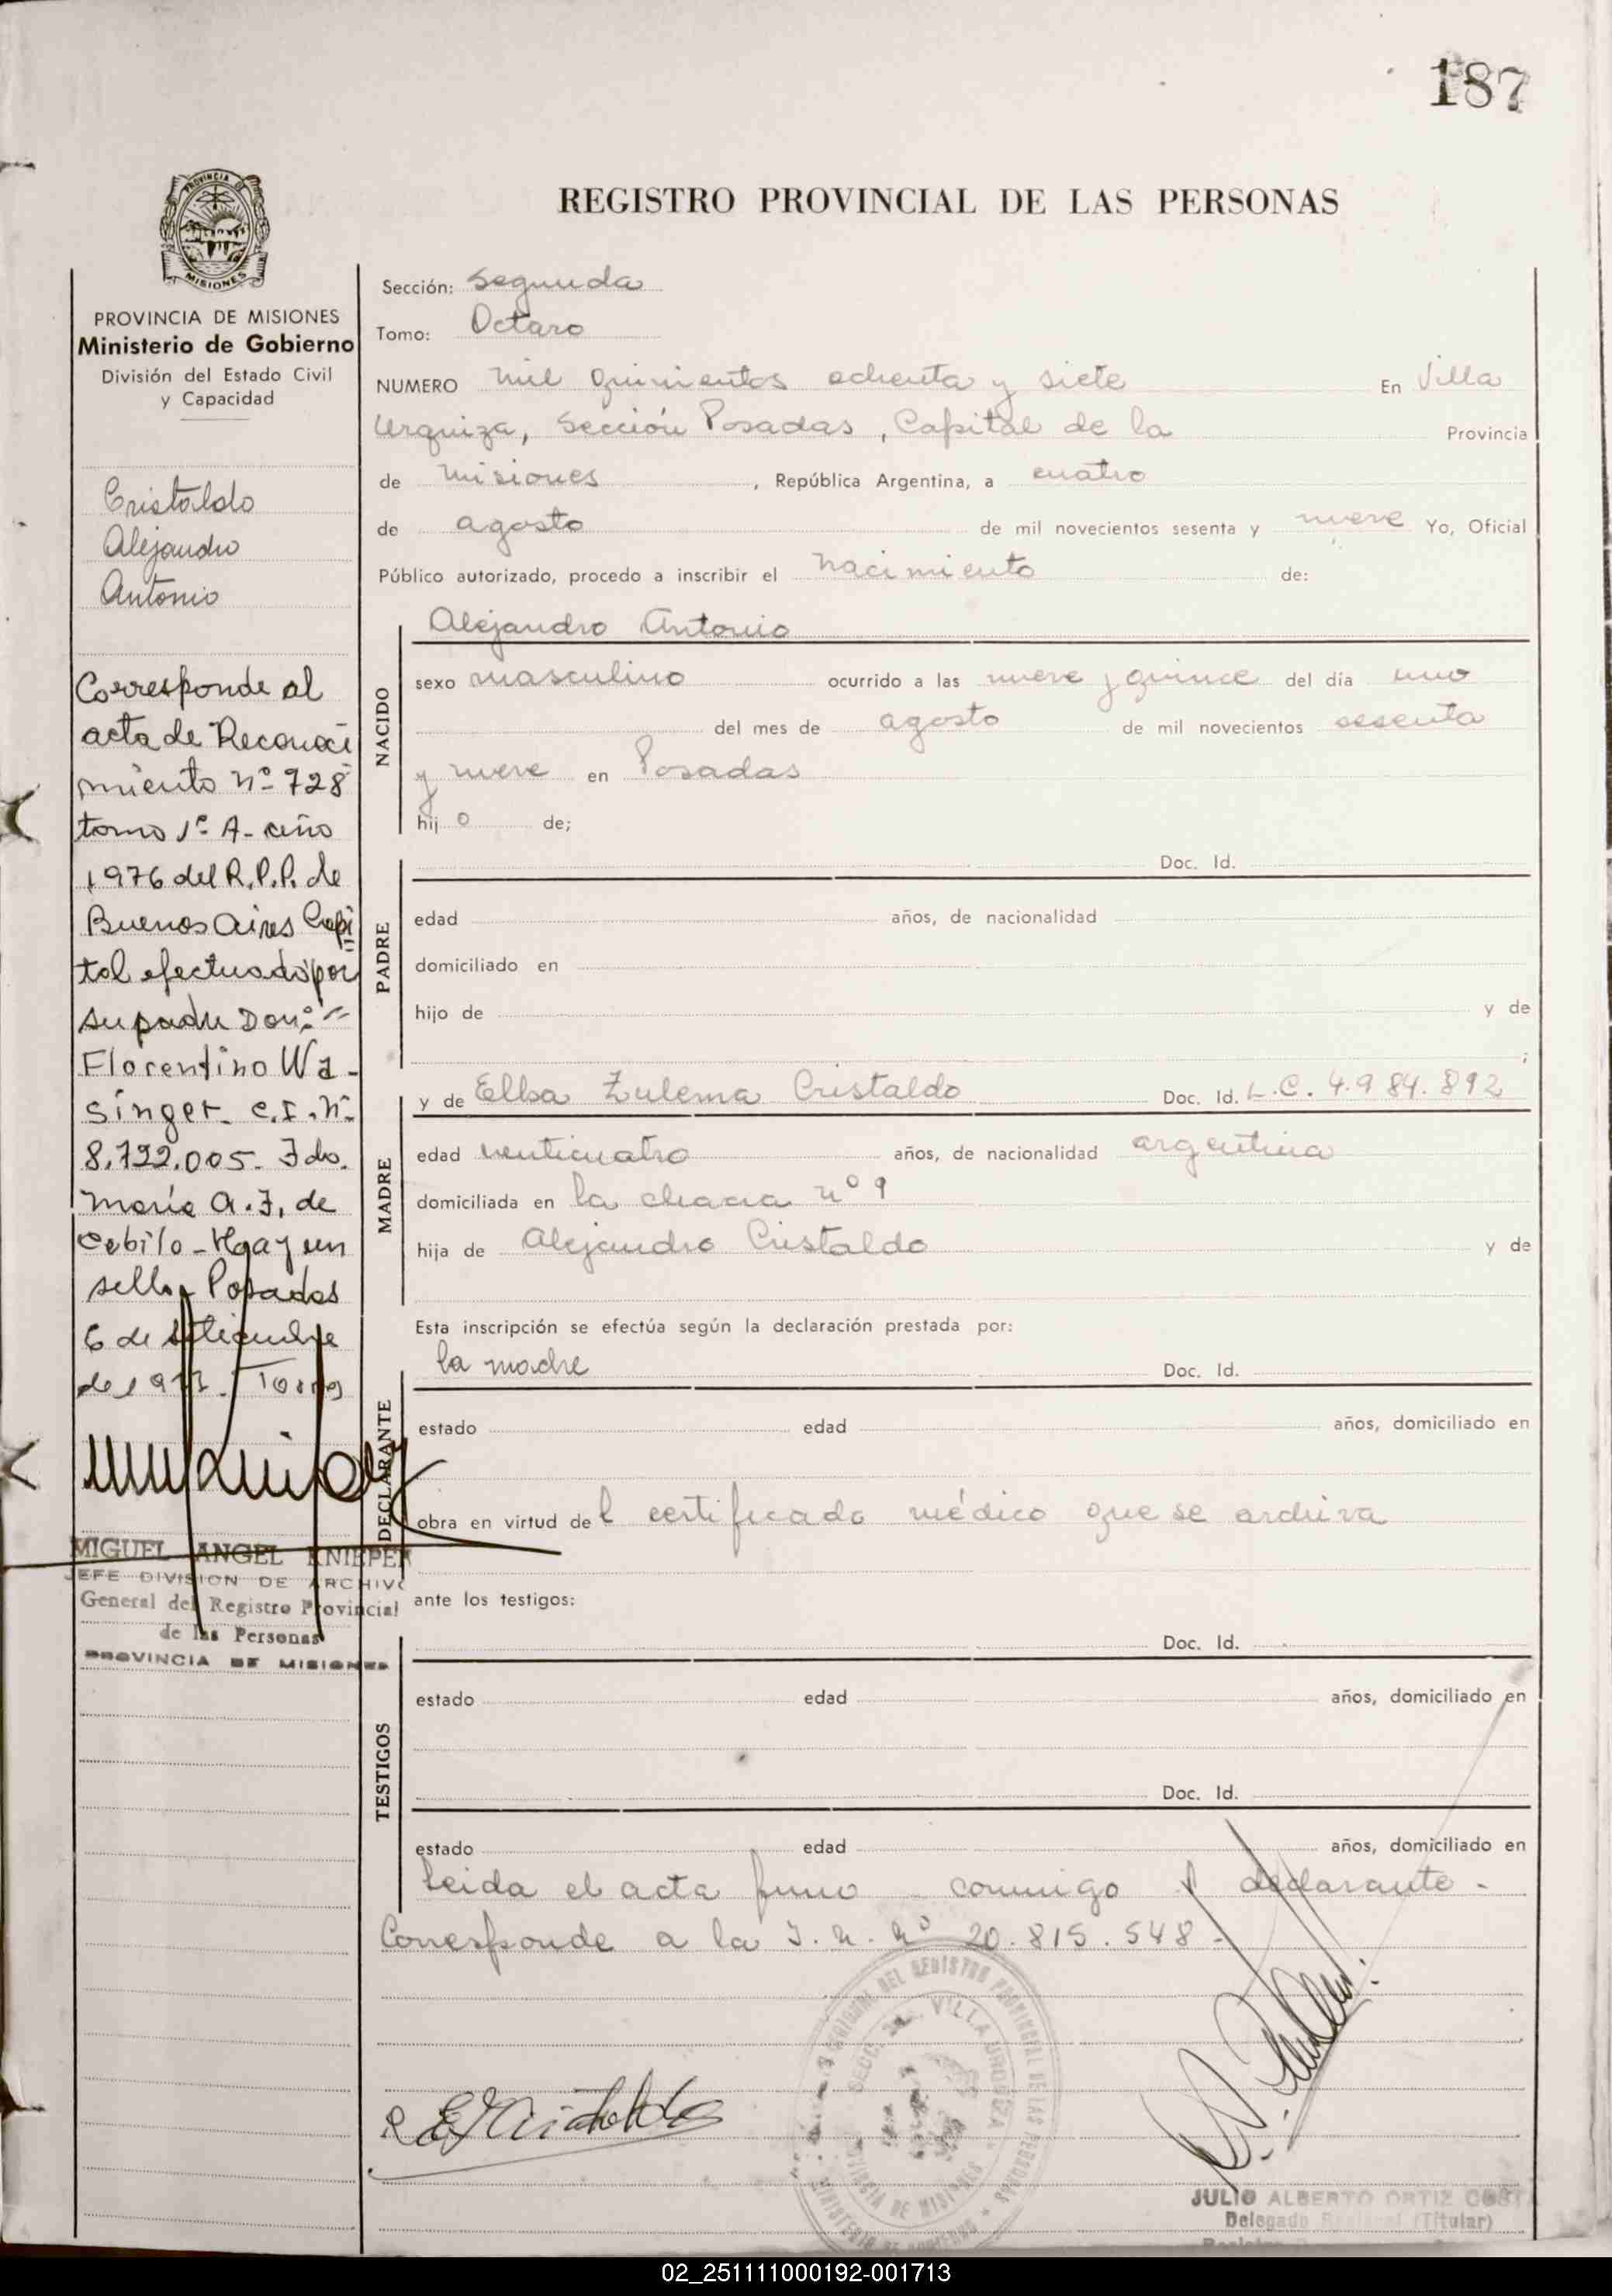 187
PROVINCIA DE
MISIONES
REGISTRO PROVINCIAL DE LAS PERSONAS
PROVINCIA DE MISIONES
Ministerio de Gobierno
División del Estado Civil
y Capacidad
Cristaldo
Alejandro
Antonio
Corresponde al
acta de Reconoci
miento nº 728
tomo 1º A- año
1976 del R.P.P. de
Buenos Aires Capi
tal efectuado por
su padre Don:
Florentino Wa-
singer- C.I.Nº
8.722.005- Fdo.
María A.F. de
Cebilo- Hay un
sello Posadas
6 de setiembre
de 19
MIGUEL ANGEL KNIEPER
JEFE DIVISION DE ARCHIVO
General del Registro Provincial
de las Personas
PROVINCIA DE MISIONES
Sección: Segunda
Tomo: Octavo
NUMERO mil quinientos ochenta y siete En Villa
Urquiza, Sección Posadas, Capital de la Provincia
de Misiones , República Argentina, a cuatro
de agosto de mil novecientos sesenta y nueve Yo, Oficial
Público autorizado, procedo a inscribir el nacimiento de:
NACIDO
Alejandro Antonio
sexo masculino ocurrido a las nueve y quince del día uno
del mes de agosto de mil novecientos sesenta
y nueve en Posadas
hij o de;
PADRE
Doc. Id.
edad años, de nacionalidad
domiciliado en
hijo de y de
;
MADRE
y de Elba Zulema Cristaldo Doc. Id. L.C. 4.984.892
edad venticuatro años, de nacionalidad argentina
domiciliada en la chacra nº 9
hija de Alejandro Cristaldo y de
DECLARANTE
Esta inscripción se efectúa según la declaración prestada por:
la madre Doc. Id.
estado edad años, domiciliado en
obra en virtud del certificado médico que se archiva
ante los testigos:
TESTIGOS
Doc. Id.
estado edad años, domiciliado en
Doc. Id.
estado edad años, domiciliado en
Leida el acta firmo conmigo declarante.-
Corresponde a la I.N. Nº 20.815.548-
DEL REGISTRO PROVINCIAL DE LAS PERSONAS
VILLA URQUIZA
PROVINCIA DE MISIONES
MINISTERIO DE GOBIERNO
JULIO ALBERTO ORTIZ
Delegado (Titular)
02_251111000192-001713